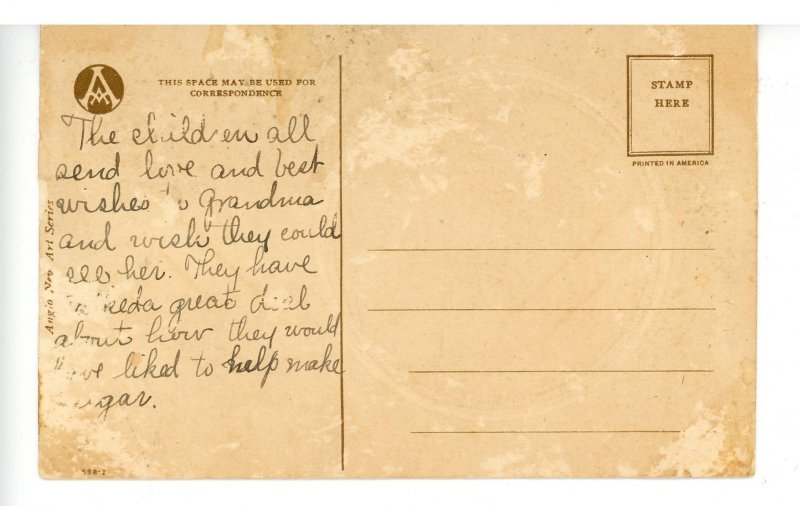 THIS SPACE MAY BE USED FOR
CORRESPONDENCE
The children all
send love and best
wishes to Grandma
and wish they could
see her. They have
a great deal
about how they would
have liked to help make
sugar.
Anglo New Art Series
STAMP
HERE
PRINTED IN AMERICA